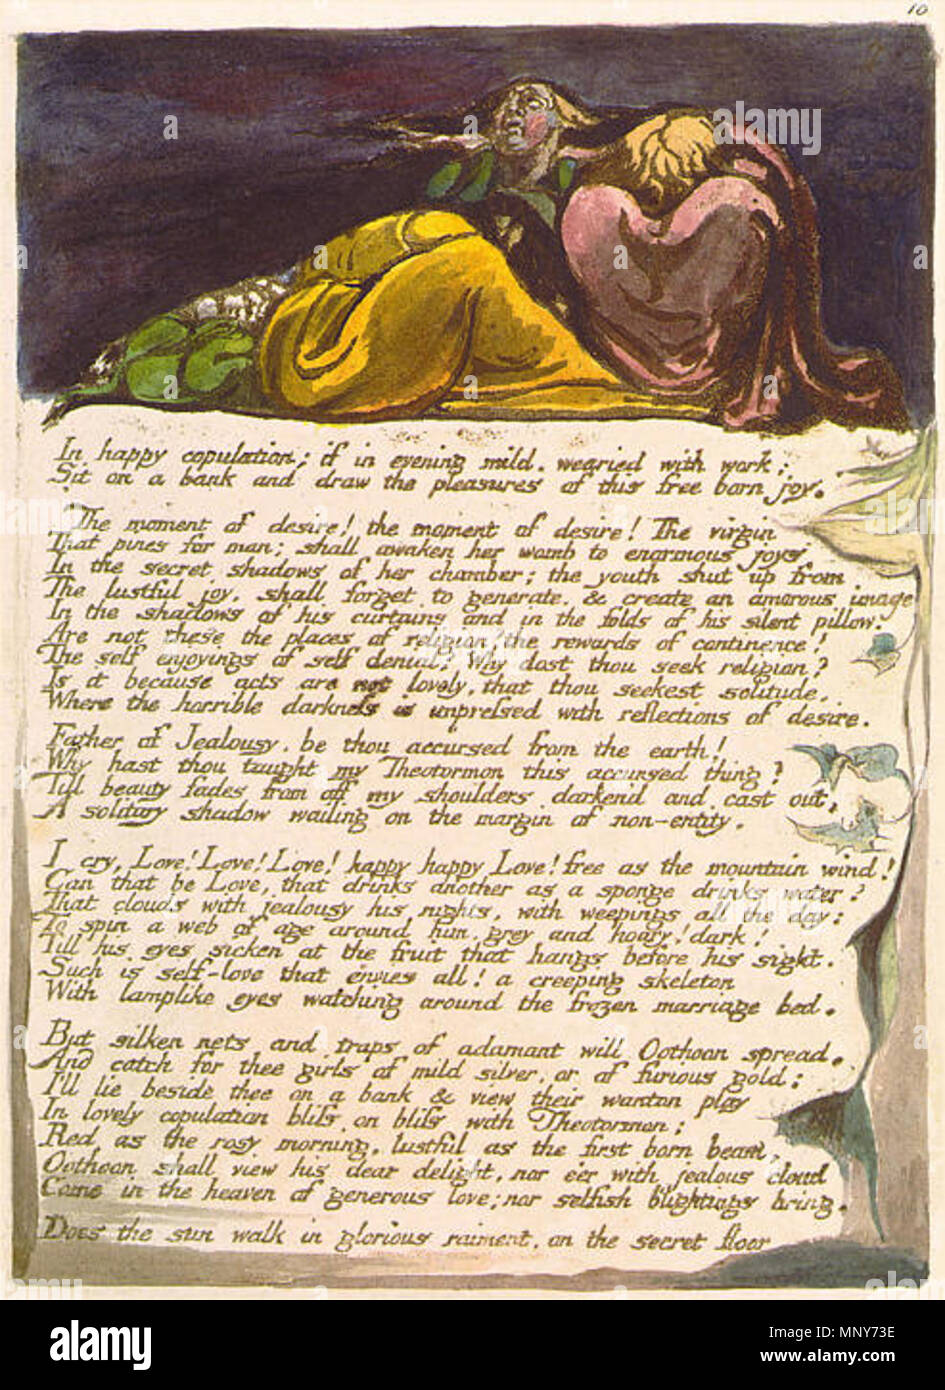 10
In happy copulation; if in evening mild. wearied with work;
Sit on a bank and draw the pleasures of this free born joy.
The moment of desire! the moment of desire! The virgin
That pines for man; shall awaken her womb to enormous joys
In the secret shadows of her chamber; the youth shut up from
The lustful joy, shall forget to generate, & create an amorous image
In the shadows of his curtains and in the folds of his silent pillow.
Are not these the places of religion? the rewards of continence!
The self enjoyings of self denial? Why dost thou seek religion?
Is it because acts are not lovely, that thou seekest solitude,
Where the horrible darkness is impressed with reflections of desire.
Father of Jealousy. be thou accursed from the earth!
Why hast thou taught my Theotormon this accursed thing?
Till beauty fades from off my shoulders darken'd and cast out,
A solitary shadow wailing on the margin of non-entity.
I cry, Love! Love! Love! happy happy Love! free as the mountain wind!
Can that be Love, that drinks another as a sponge drinks water?
That clouds with jealousy his nights, with weepings all the day:
To spin a web of age around him. grey and hoary! dark!
Till his eyes sicken at the fruit that hangs before his sight.
Such is self-love that envies all! a creeping skeleton
With lamplike eyes watching around the frozen marriage bed.
But silken nets and traps of adamant will Oothoon spread.
And catch for thee girls of mild silver, or of furious gold;
I'll lie beside thee on a bank & view their wanton play
In lovely copulation bliss on bliss with Theotormon:
Red as the rosy morning, lustful as the first born beam,
Oothoon shall view his dear delight, nor e'er with jealous cloud
Come in the heaven of generous love; nor selfish blightings bring.
Does the sun walk in glorious raiment. on the secret floor
alamy
Image ID: MNY73E
www.alamy.com